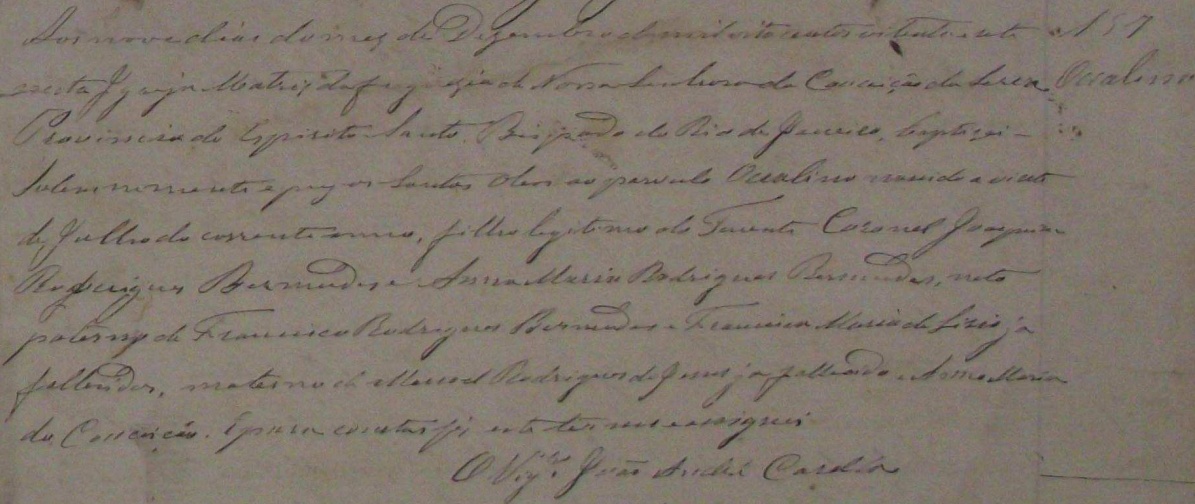 Aos nove dias do mez de Dezembro de mil oitocentos oitenta e sete N 57
nesta Igreja Matriz da freguezia de Nossa Senhora da Conceição da Serra Ocalino
Provincia do Espirito Santo Bispado do Rio de Janeiro, baptizei
solemnemente e puz os Santos Oleos ao parvulo Ocalino nascido a vinte
de Julho do corrente anno, filho legitimo do Tenente Coronel Joaquim
Rodrigues Bermudes e Anna Maria Rodrigues Bermudes, neto
paterno de Francisco Rodrigues Bermudes e Francisca Maria de já
fallecidos, materno de Manoel Rodrigues de Jesus ja fallecido e Anna Maria
da Conceição. E para constar fiz este termo e assignei
O Vigr.º João André Casella